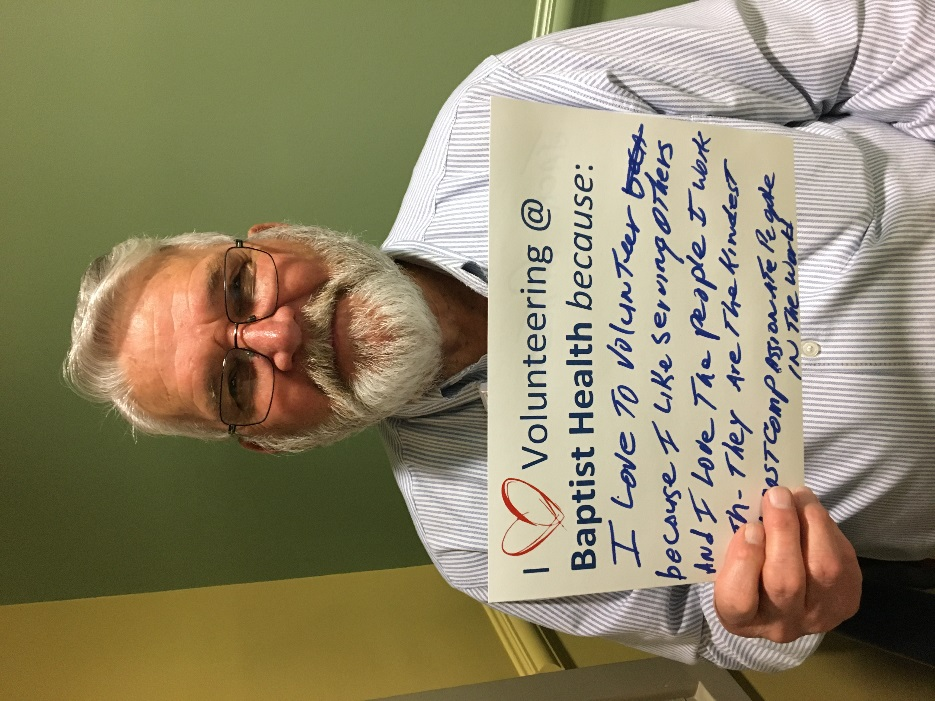 I Volunteering @
Baptist Health because:
I Love To Volunteer
because I Like serving others
And I Love The people I work
Th- They Are The Kindest
COMPASSIONATE People
IN THE World